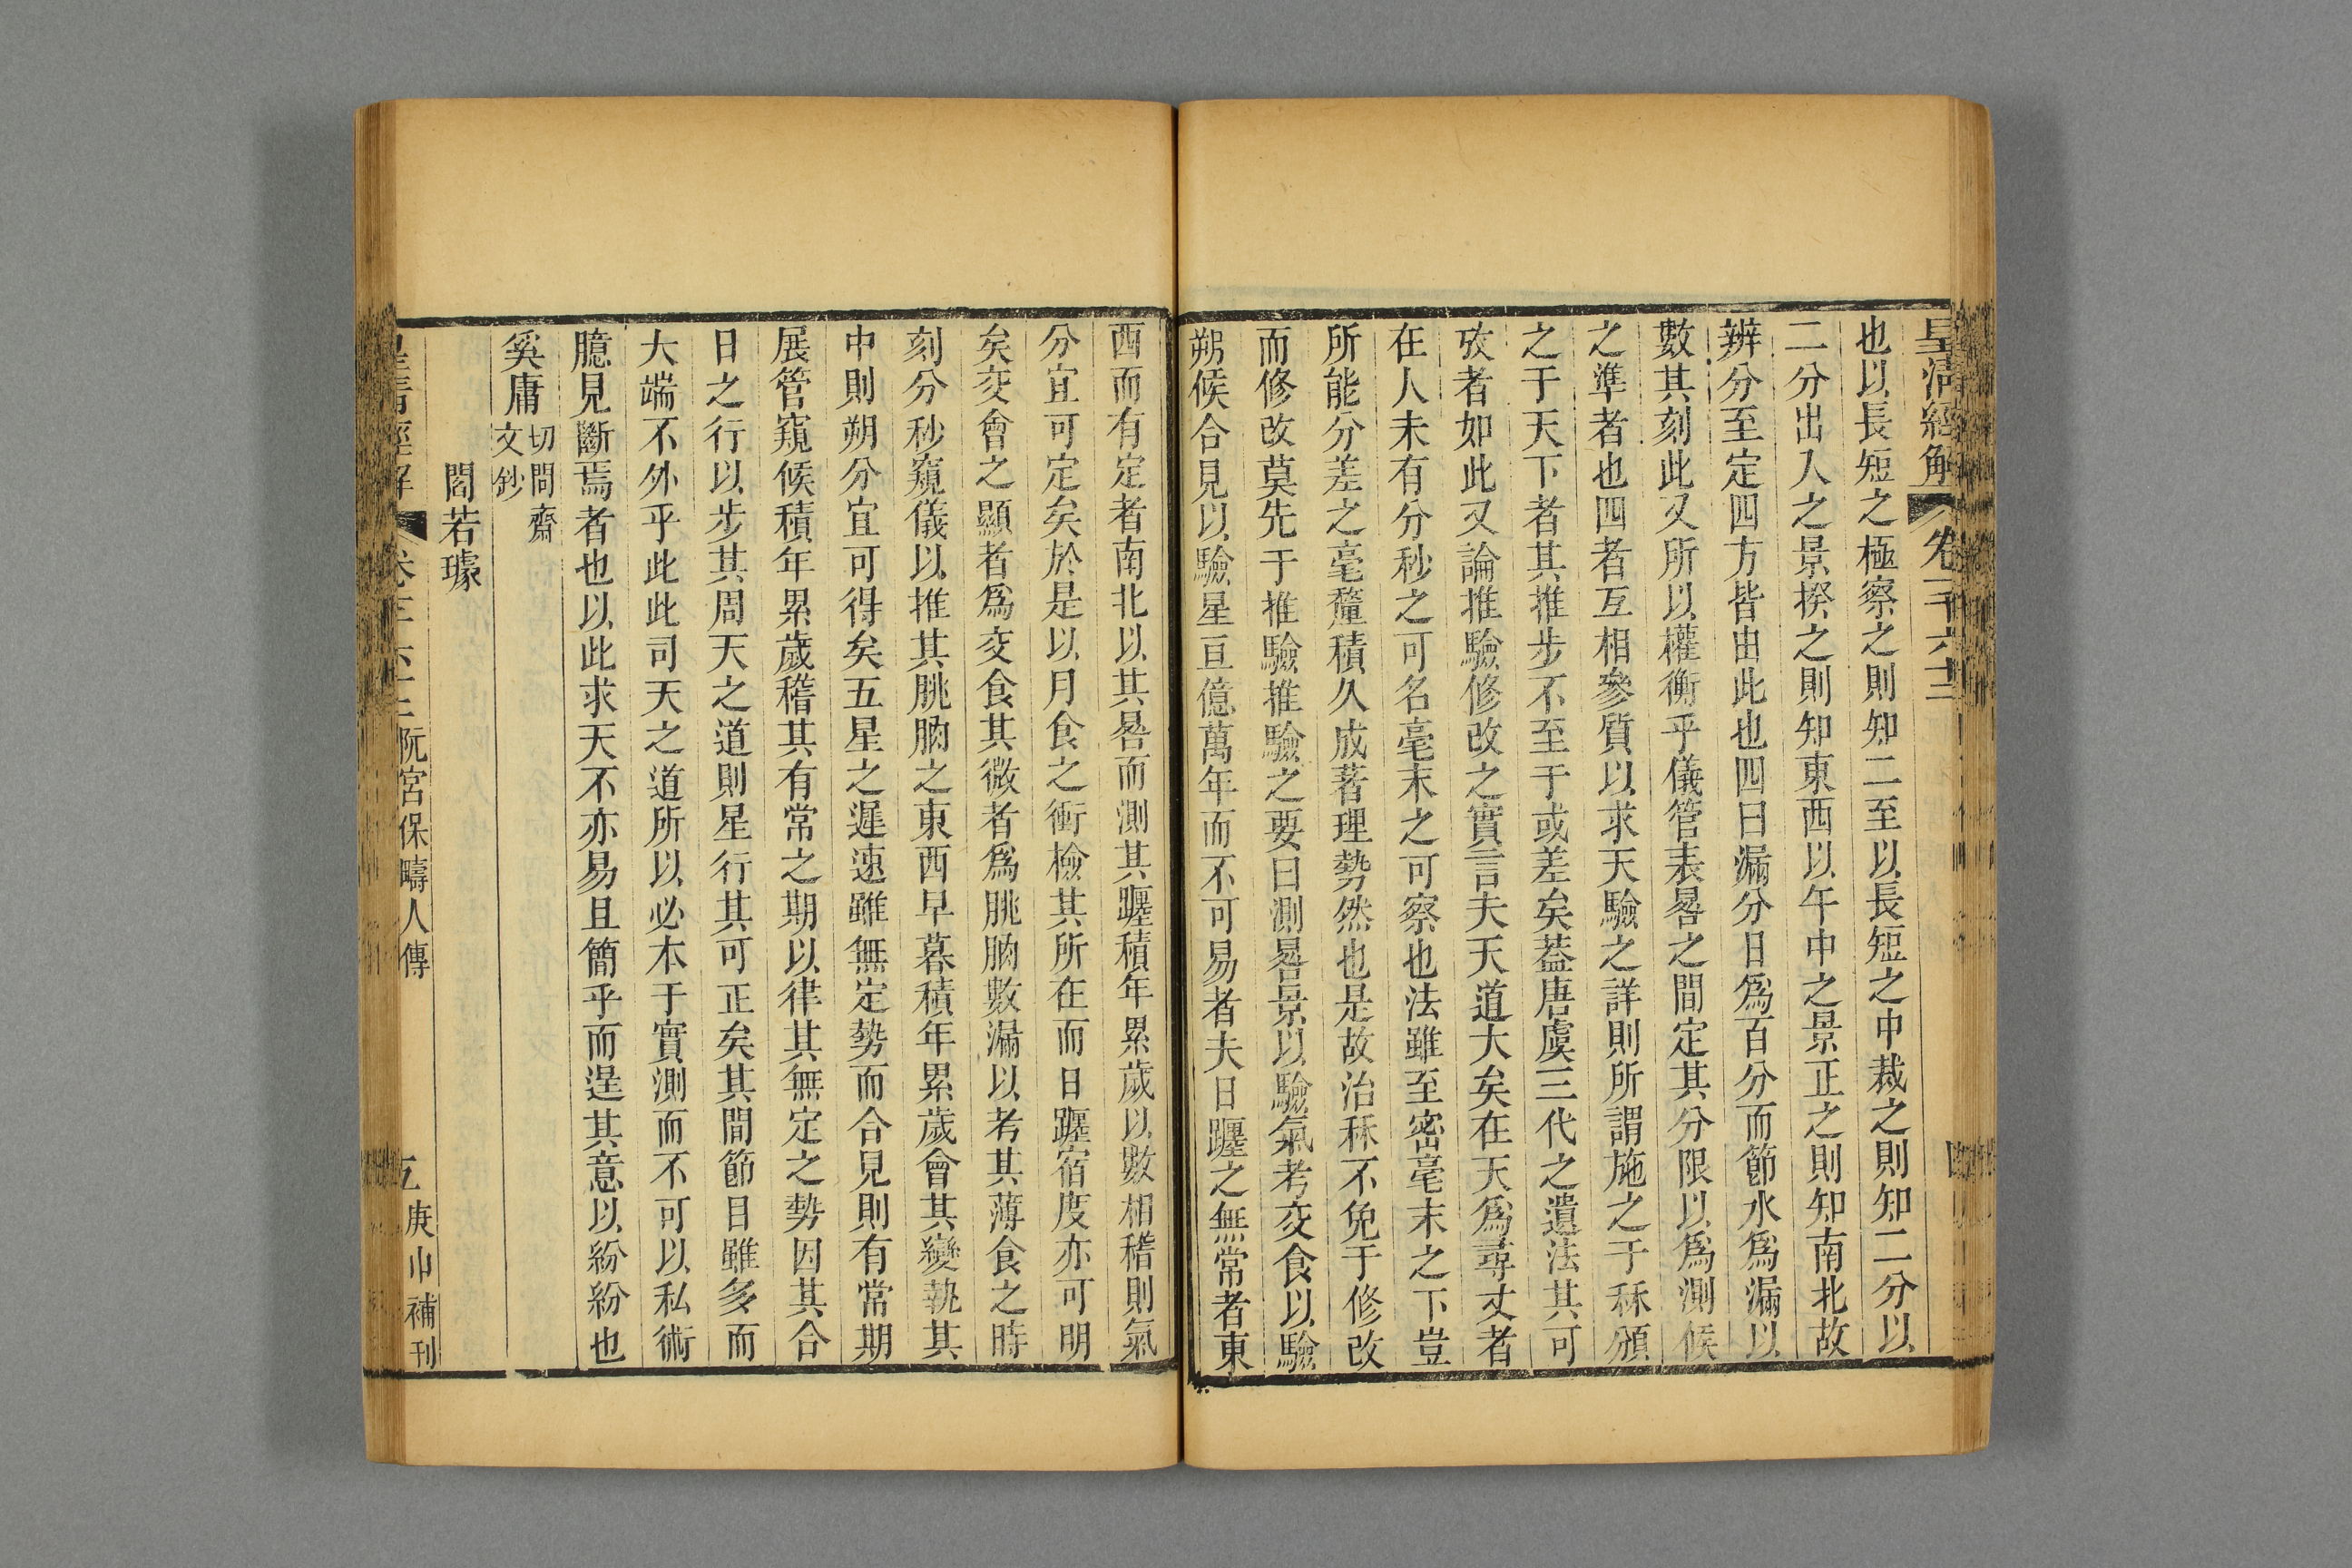 皇清經解 卷千六十三 四
也以長短之極察之則知二至以長短之中裁之則知二分以
二分出入之景揆之則知東西以午中之景正之則知南北故
辨分至定四方皆由此也四曰漏分日爲百分而節水爲漏以
數其刻此又所以權衡乎儀管表晷之間定其分限以爲測候
之準者也四者互相參質以求天驗之詳則所謂施之于秝頒
之于天下者其推步不至于或差矣蓋唐虞三代之遺法其可
攷者如此又論推驗修改之實言夫天道大矣在天爲尋丈者
在人未有分秒之可名毫末之可察也法雖至密毫末之下豈
所能分差之毫釐積久成著理勢然也是故治秝不免于修改
而修改莫先于推驗推驗之要曰測晷景以驗氣考交食以驗
朔候合見以驗星亘億萬年而不可易者夫日躔之無常者東
西而有定者南北以其晷而測其躔積年累歲以數相稽則氣
分宜可定矣於是以月食之衝檢其所在而日躔宿度亦可明
矣交會之顯者爲交食其微者爲朓朒數漏以考其薄食之時
刻分秒窺儀以推其朓朒之東西早暮積年累歲會其變執其
中則朔分宜可得矣五星之遲速雖無定勢而合見則有常期
展管窺候積年累歲稽其有常之期以律其無定之勢因其合
日之行以步其周天之道則星行其可正矣其間節目雖多而
大端不外乎此此司天之道所以必本于實測而不可以私術
臆見斷焉者也以此求天不亦易且簡乎而逞其意以紛紛也
奚庸切問齋文鈔
閻若璩
皇清經解 阮宮保疇人傳 五 庚申補刊